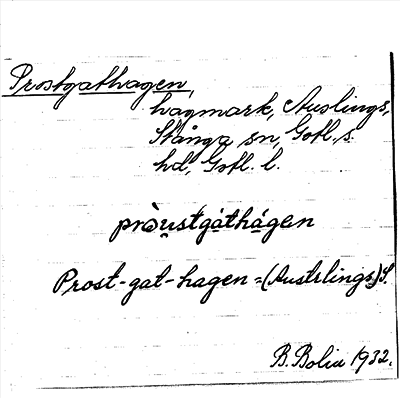 Prostgathagen,
hagmark, Auslings,
Stånga sn, Gotl. s.
hd, Gotl. l.
pròu̯stgáthágen
Prost-gat-hagen =(Austrlings) S.
B. Bolin 1932.